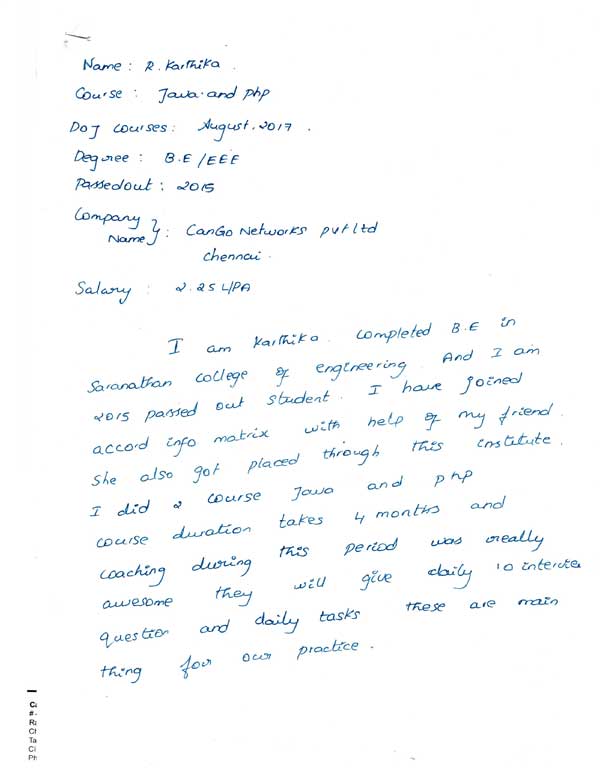 Name : R. Karthika.
Course : Java and php
DOJ courses : August. 2017.
Degree : B.E / EEE
Passedout : 2015
Company
Name } : CanGo Networks pvt ltd
Chennai.
Salary : 2.25 L/PA
I am Karthika. Completed B.E in
Saranathan college of engineering. And I am
2015 passed out student. I have joined
accord info matrix with help of my friend.
She also got placed through this institute.
I did 2 course Java and php
course duration takes 4 months and
coaching during this period was really
awesome they will give daily 10 interview
question and daily tasks these are main
thing for our practice.
Ca
#
Ra
Ch
Ta
Ci
Ph